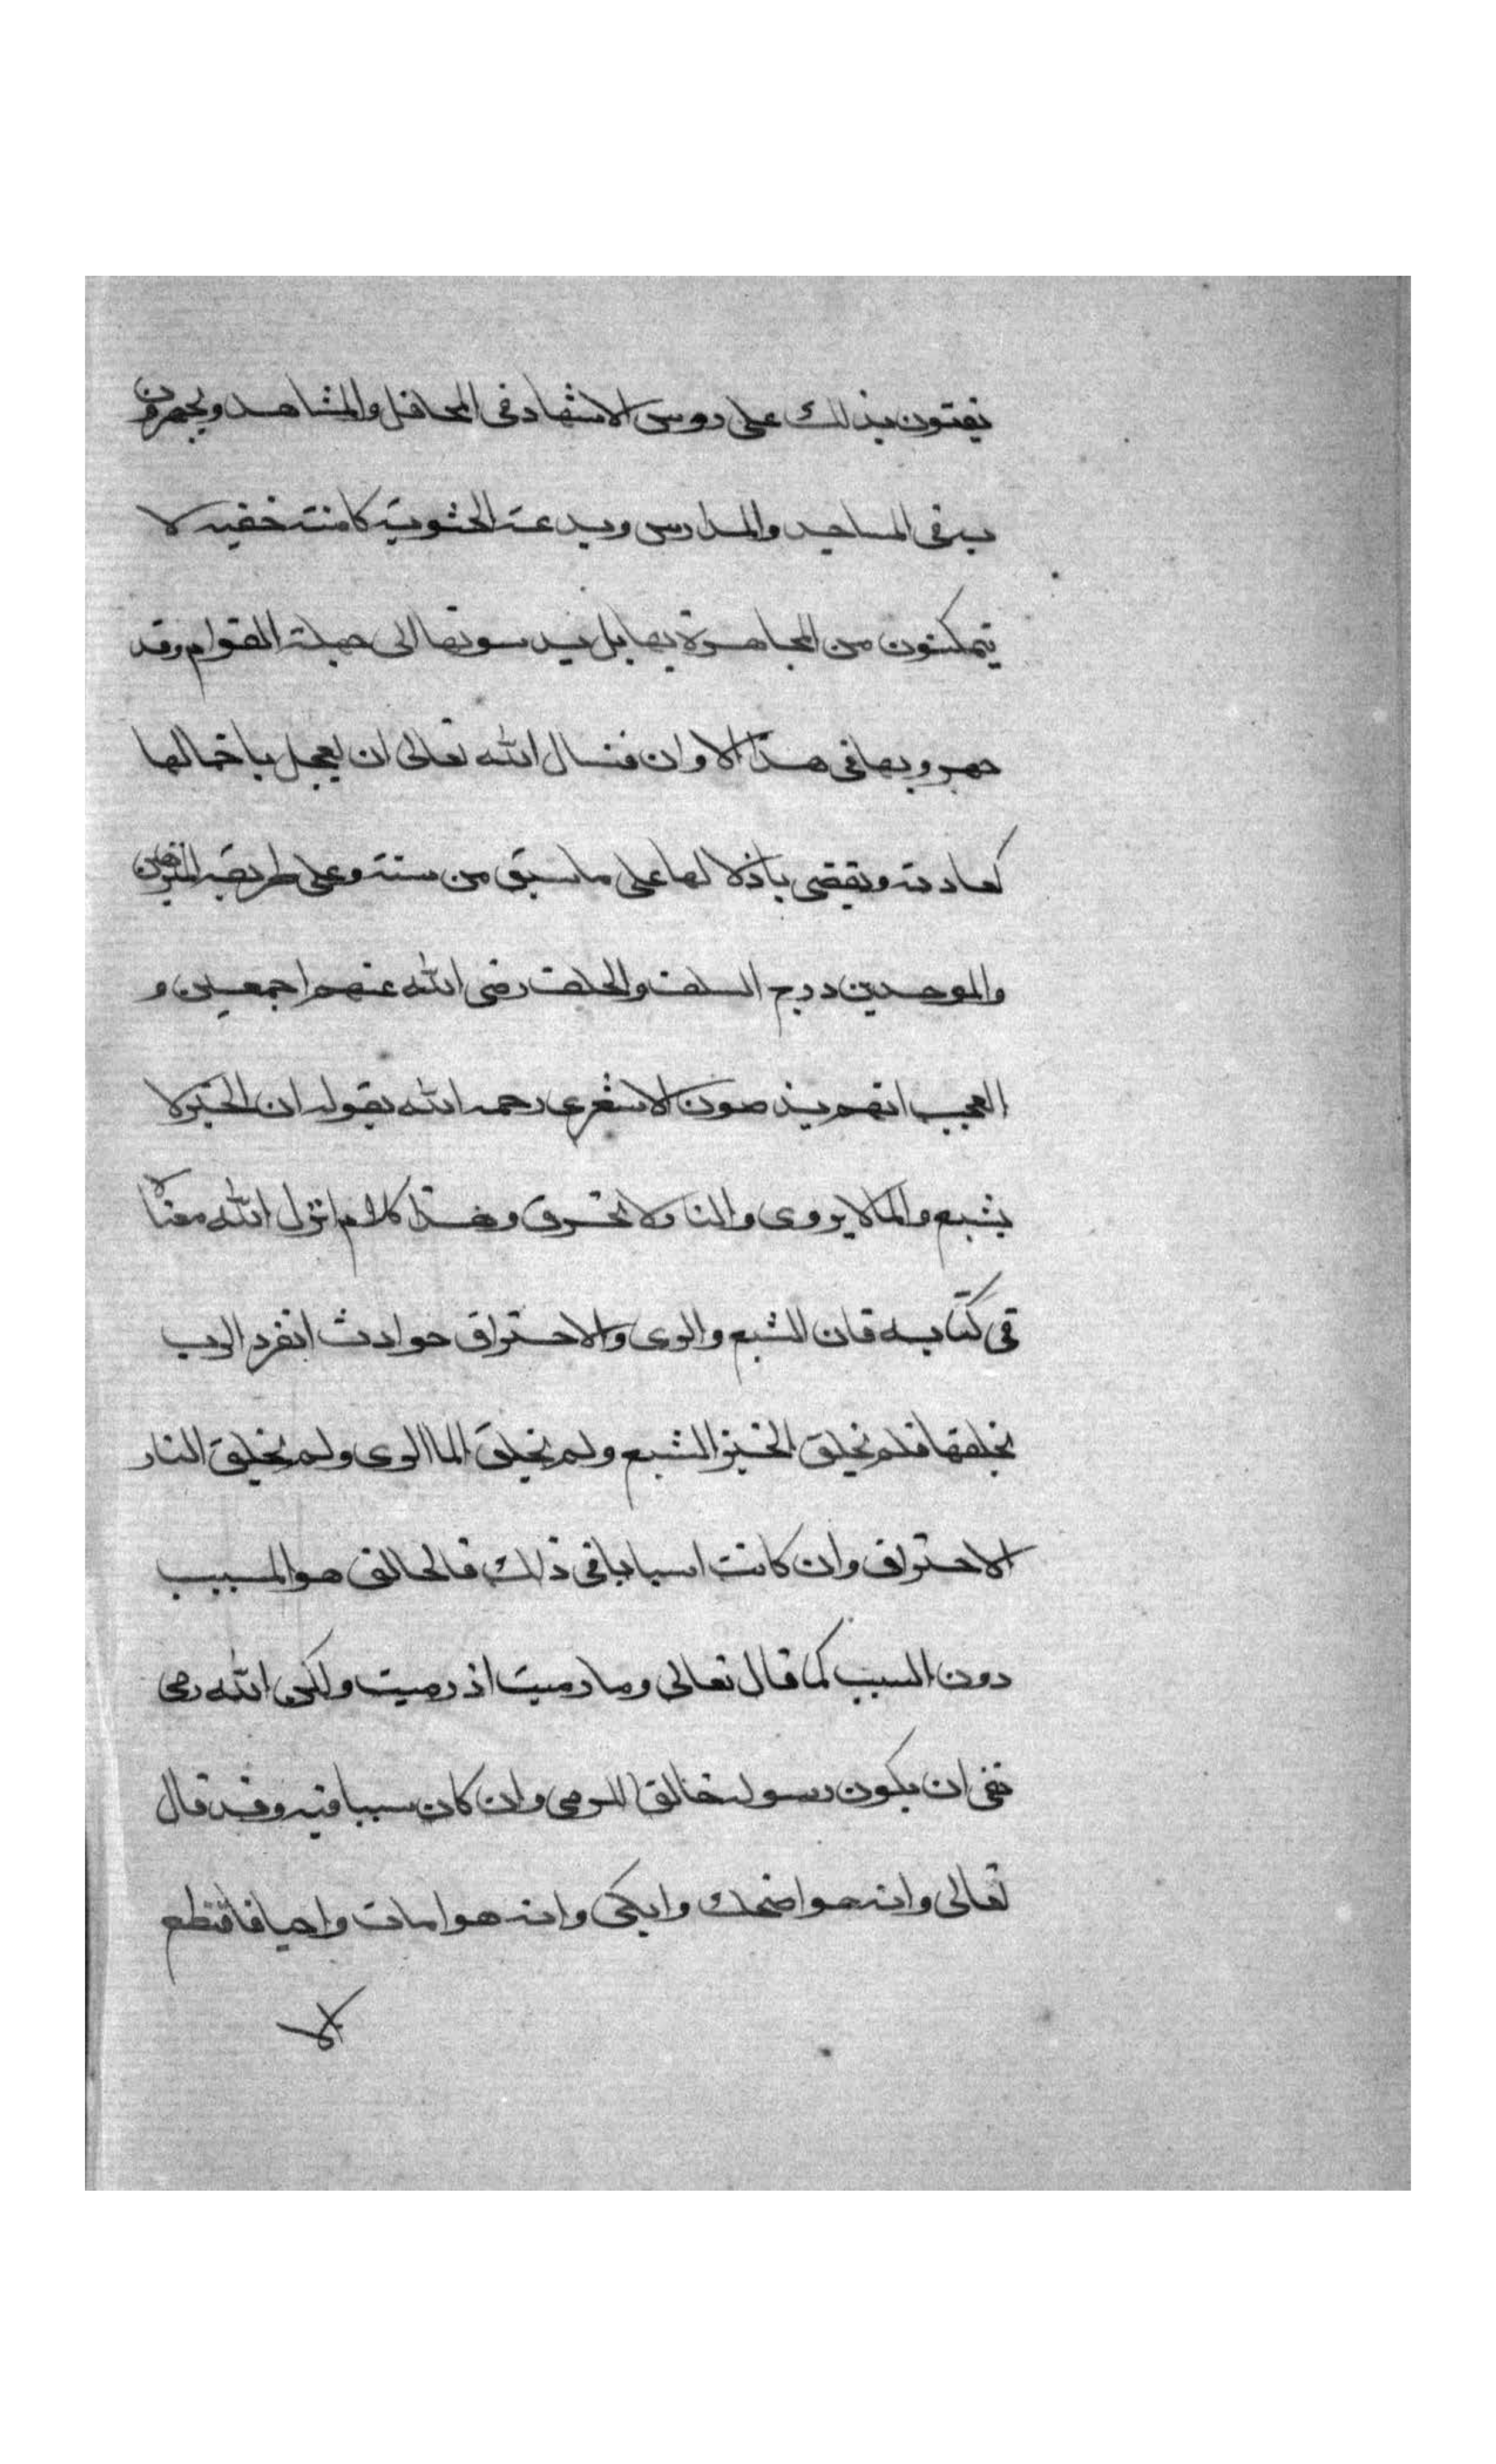 يفتون بذلك على روس الاشهاد فى المحافل والمشاهد ويجهرون
به فى المساجد والمدارس وبدعة الحشوية كامنة خفيه لا
يتمكنون من المجاهرة بها بل يدسونها الى جهلة العوام وقد
جهروا بها فى هذا الاوان فنسال الله تعالى ان يعجل باخمالها
كعادته ويقضى باذلالها على ما سبق من سنته وعلى طريقة المنزهين
والموحدين درج السلف والخلف رضى الله عنهم اجمعين و
العجب انهم يذمون الاشعرى رحمه الله بقوله ان الخبز لا
يشبع والما لا يروى والنار لا تحرق وهذا كلام انزل الله معناه
فى كتابه فان الشبع والرى والاحتراق حوادث انفرد الرب
بخلقها فلم يخلق الخبز الشبع ولم يخلق الما الرى ولم يخلق النار
الاحتراق وان كانت اسبابا فى ذلك فالخالق هو المسبب
دون السبب كما قال تعالى وما رميت اذ رميت ولكن الله رمى
نفى ان يكون رسوله خالقا للرمى وان كان سببا فيه وقد قال
تعالى وانه هو اضحك وابكى وانه هو امات واحيا فاقتطع
الا